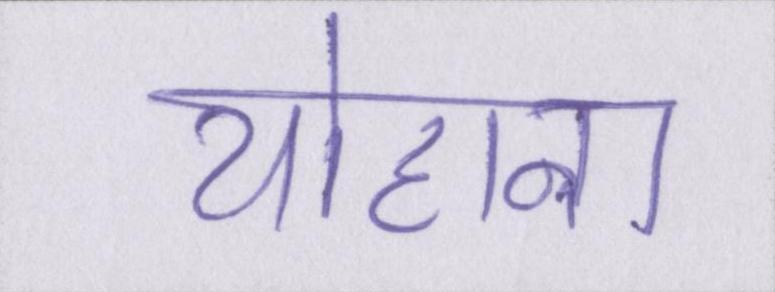 योहाना